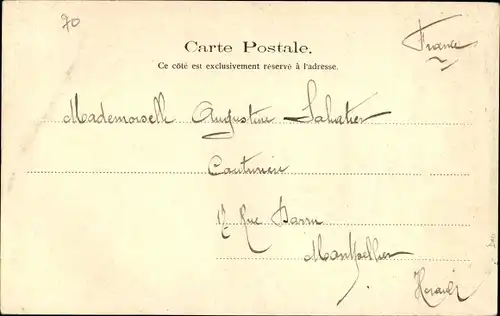 70
France
Carte Postale.
Ce côté est exclusivement réservé à l'adresse.
Mademoiselle Augustine Sabatier
Couturière
17 Rue
Montpellier
Herault